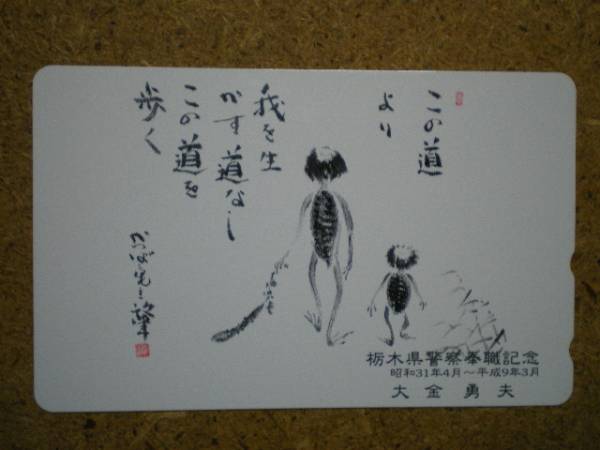 この道
より
我を生
かす道なし
この道を
歩く
栃木県警察奉職記念
昭和31年4月〜平成9年3月
大金勇夫